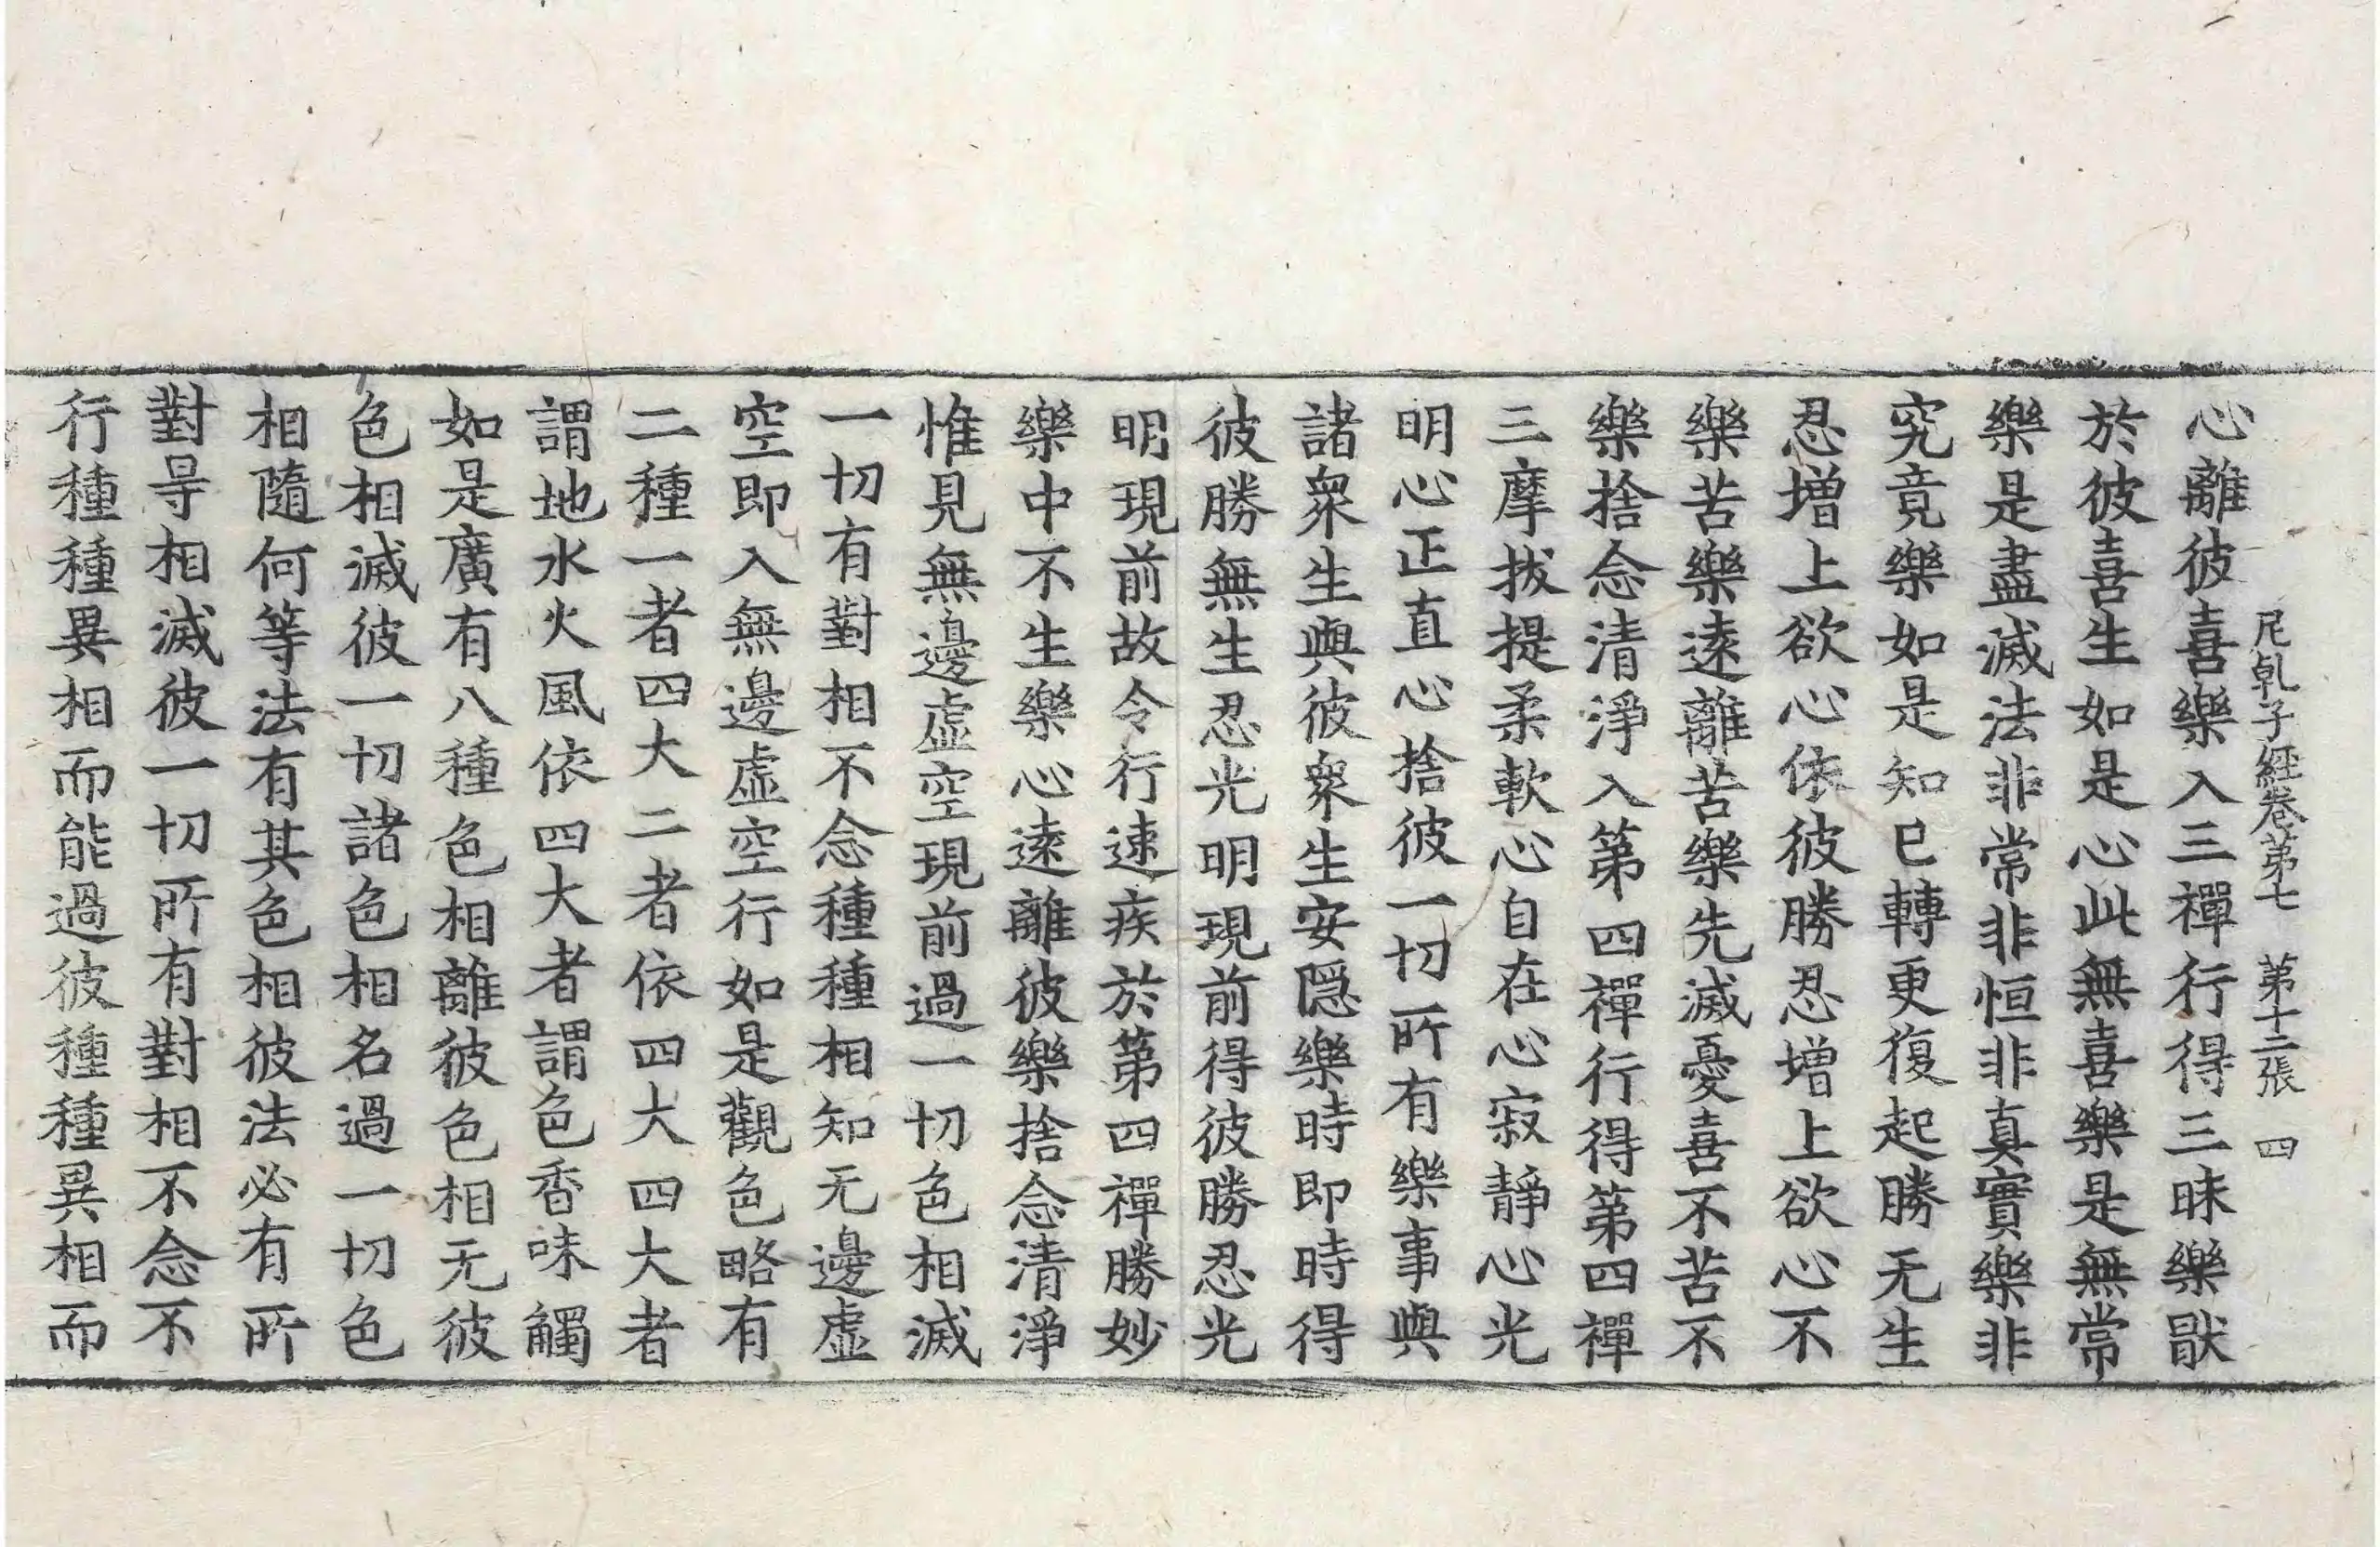 尼乹子經卷第七　第十二張　四
心離彼喜樂入三禪行得三昧樂猒
於彼喜生如是心此無喜樂是無常
樂是盡滅法非常非恒非真實樂非
究竟樂如是知已轉更復起勝无生
忍增上欲心依彼勝忍增上欲心不
樂苦樂遠離苦樂先滅憂喜不苦不
樂捨念清淨入第四禪行得第四禪
三摩拔提柔軟心自在心寂靜心光
明心正直心捨彼一切所有樂事與
諸衆生與彼衆生安隱樂時即時得
彼勝無生忍光明現前得彼勝忍光
明現前故令行速疾於第四禪勝妙
樂中不生樂心遠離彼樂捨念清淨
惟見無邊虛空現前過一切色相滅
一切有對相不念種種相知无邊虛
空即入無邊虛空行如是觀色略有
二種一者四大二者依四大四大者
謂地水火風依四大者謂色香味觸
如是廣有八種色相離彼色相无彼
色相滅彼一切諸色相名過一切色
相隨何等法有其色相彼法必有所
對㝵相滅彼一切所有對相不念不
行種種異相而能過彼種種異相而